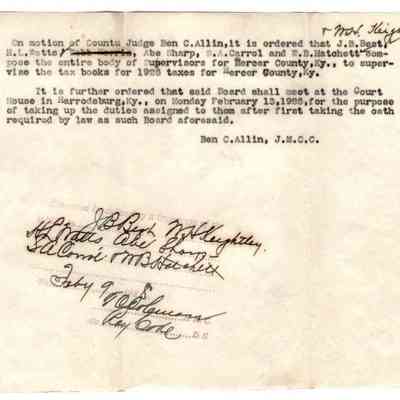 & W.H. Keig
On motion of County Judge Ben C.Allin,it is ordered that J.B.Best,
H.L.Watts, Abe Sharp, S.A.Carrol and W.B.Hatchett com-
pose the entire body of Supervisors for Mercer County,Ky., to super-
vise the tax books for 1928 taxes for Mercer County,Ky.
It is further ordered that said Board shall meet at the Court
House in Harrodsburg,Ky., on Monday February 13,1928,for the purpose
of taking up the duties assigned to them after first taking the oath
required by law as such Board aforesaid.
Ben C.Allin, J.M.C.C.
J B Best W H Keightley.
H L Watts, Abe Sharp
S A Carrol & W B Hatchett
Feby 9
Coleman
Ray Code D.S